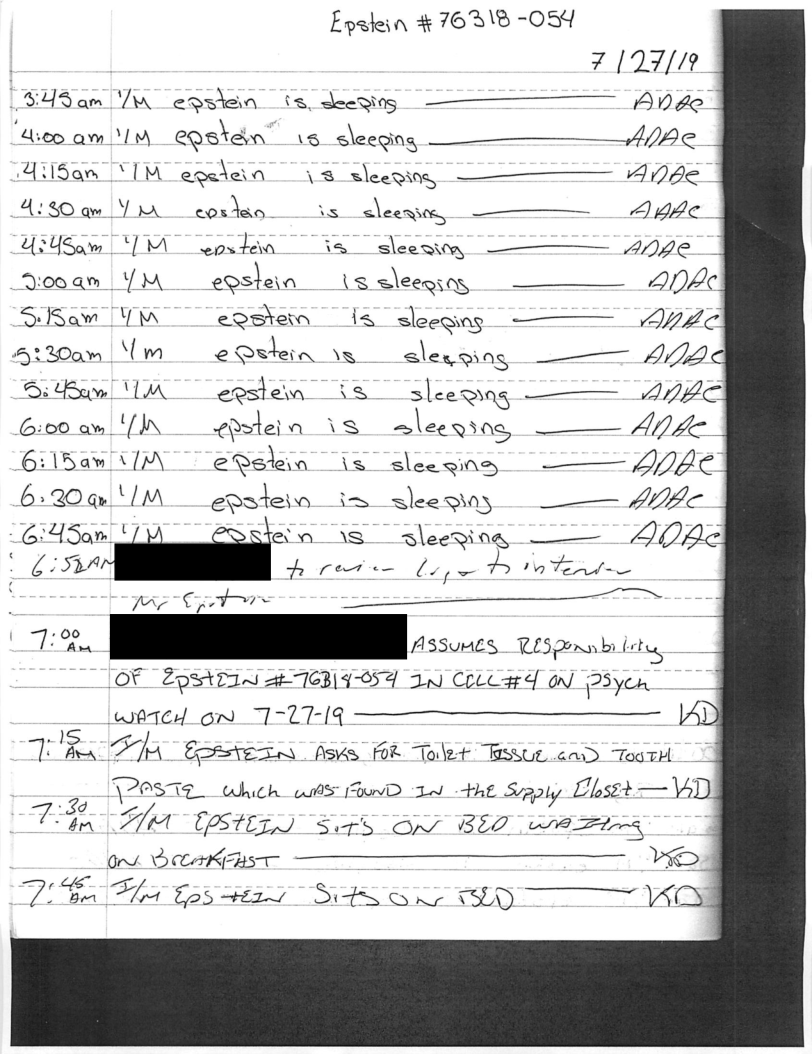 Epstein # 76318-054
7/27/19
3:45am I/M epstein is sleeping ADAC
4:00 am I/M epstein is sleeping ADAC
4:15am I/M epstein is sleeping ADAC
4:30 am I/M epstein is sleeping ADAC
4:45am I/M epstein is sleeping ADAC
5:00am I/M epstein is sleeping ADAC
5:15am I/M epstein is sleeping ADAC
5:30am I/m epstein is sleeping ADAC
5:45am I/M epstein is sleeping ADAC
6:00 am I/M epstein is sleeping ADAC
6:15am I/M epstein is sleeping ADAC
6:30 am I/M epstein is sleeping ADAC
6:45am I/M epstein is sleeping ADAC
AM to review to
Mr Epstein
7:00 AM ASSUMES RESponsibility
OF EpstEIN # 76318-054 IN CELL #4 ON psych
WATCH ON 7-27-19 KD
7:15 AM I/M EPSTEIN ASKS FOR Toilet TISSUE and TOOTH
PASTE which was FOUND IN the Supply Closet — KD
7:30 AM I/M EPSTEIN SitS ON BED WAITing
ON BREAKFAST KD
7:45 AM I/M EpStEIN SitS ON BED KD